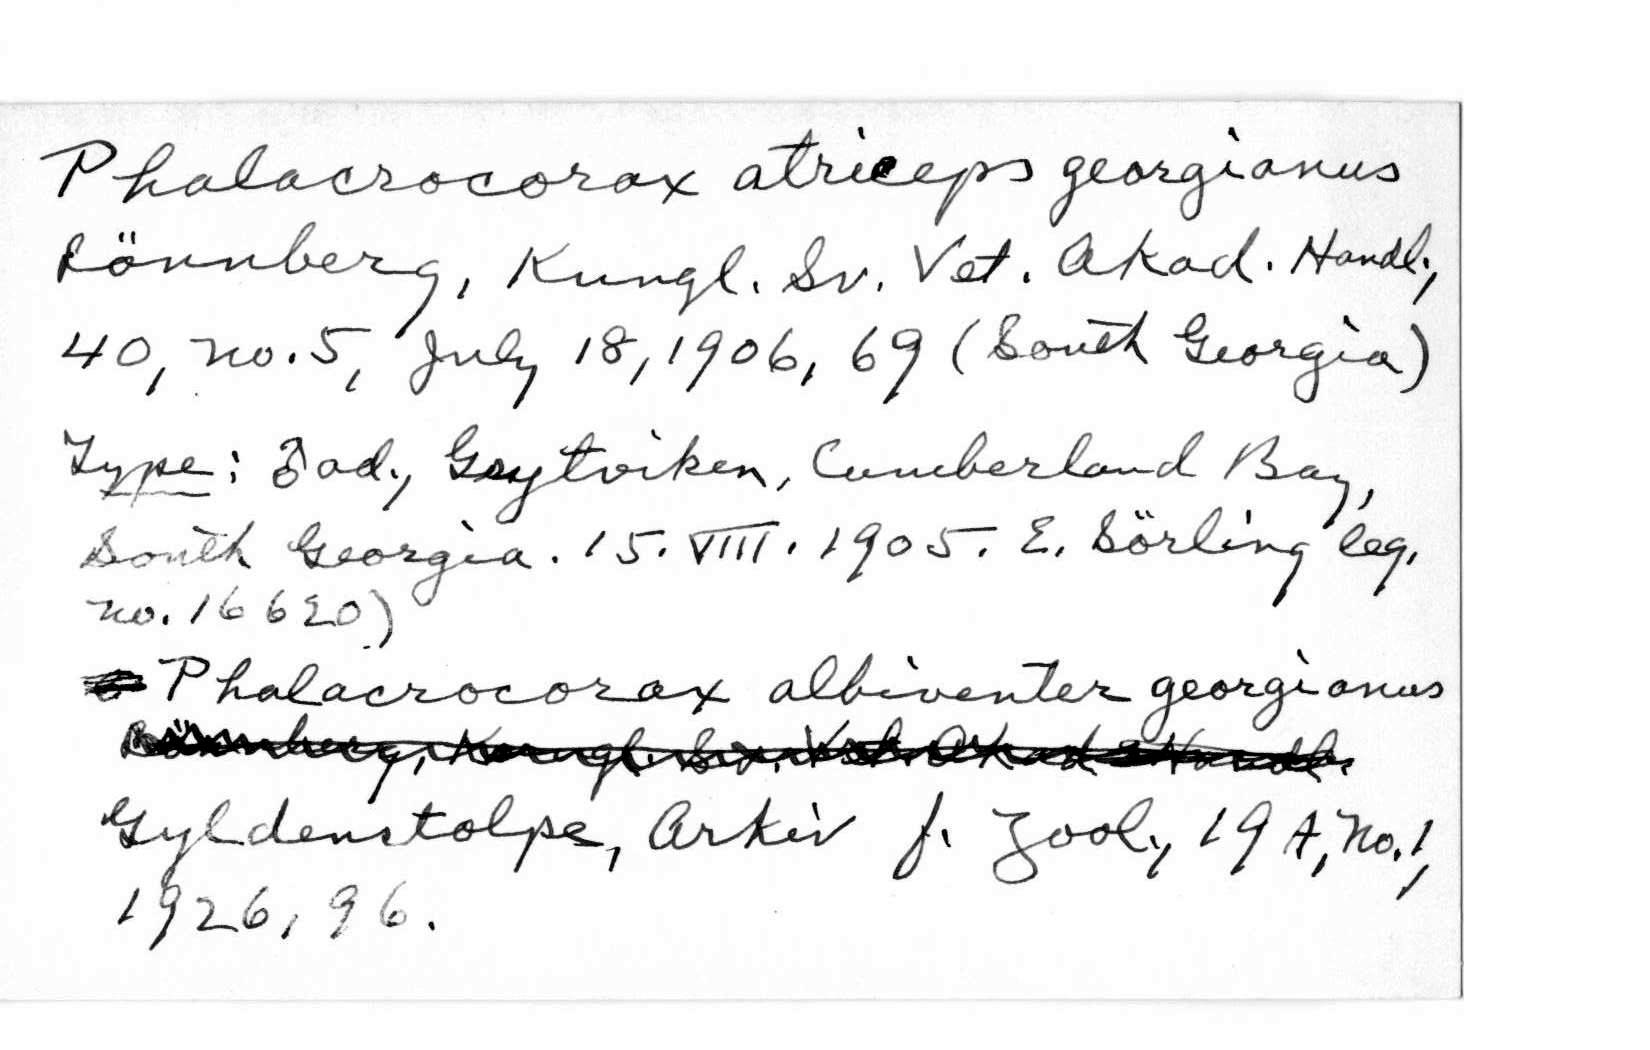 Phalacrocorax atriceps georgianus
Lönnberg, Kungl. Sv. Vet. Akad. Handl.,
40, no. 5, July 18, 1906, 69 (South Georgia)
Type: ♂ ad., Grytviken, Cumberland Bay,
South Georgia. 15. VIII. 1905. E. Sörling leg.
no. 16620)
Phalacrocorax albiventer georgianus
Lönnberg, Kungl. Sv. Vet. Akad. Handl.
Gyldenstolpe, Arkiv f. Zool., 19 A, No. 1,
1926, 96.